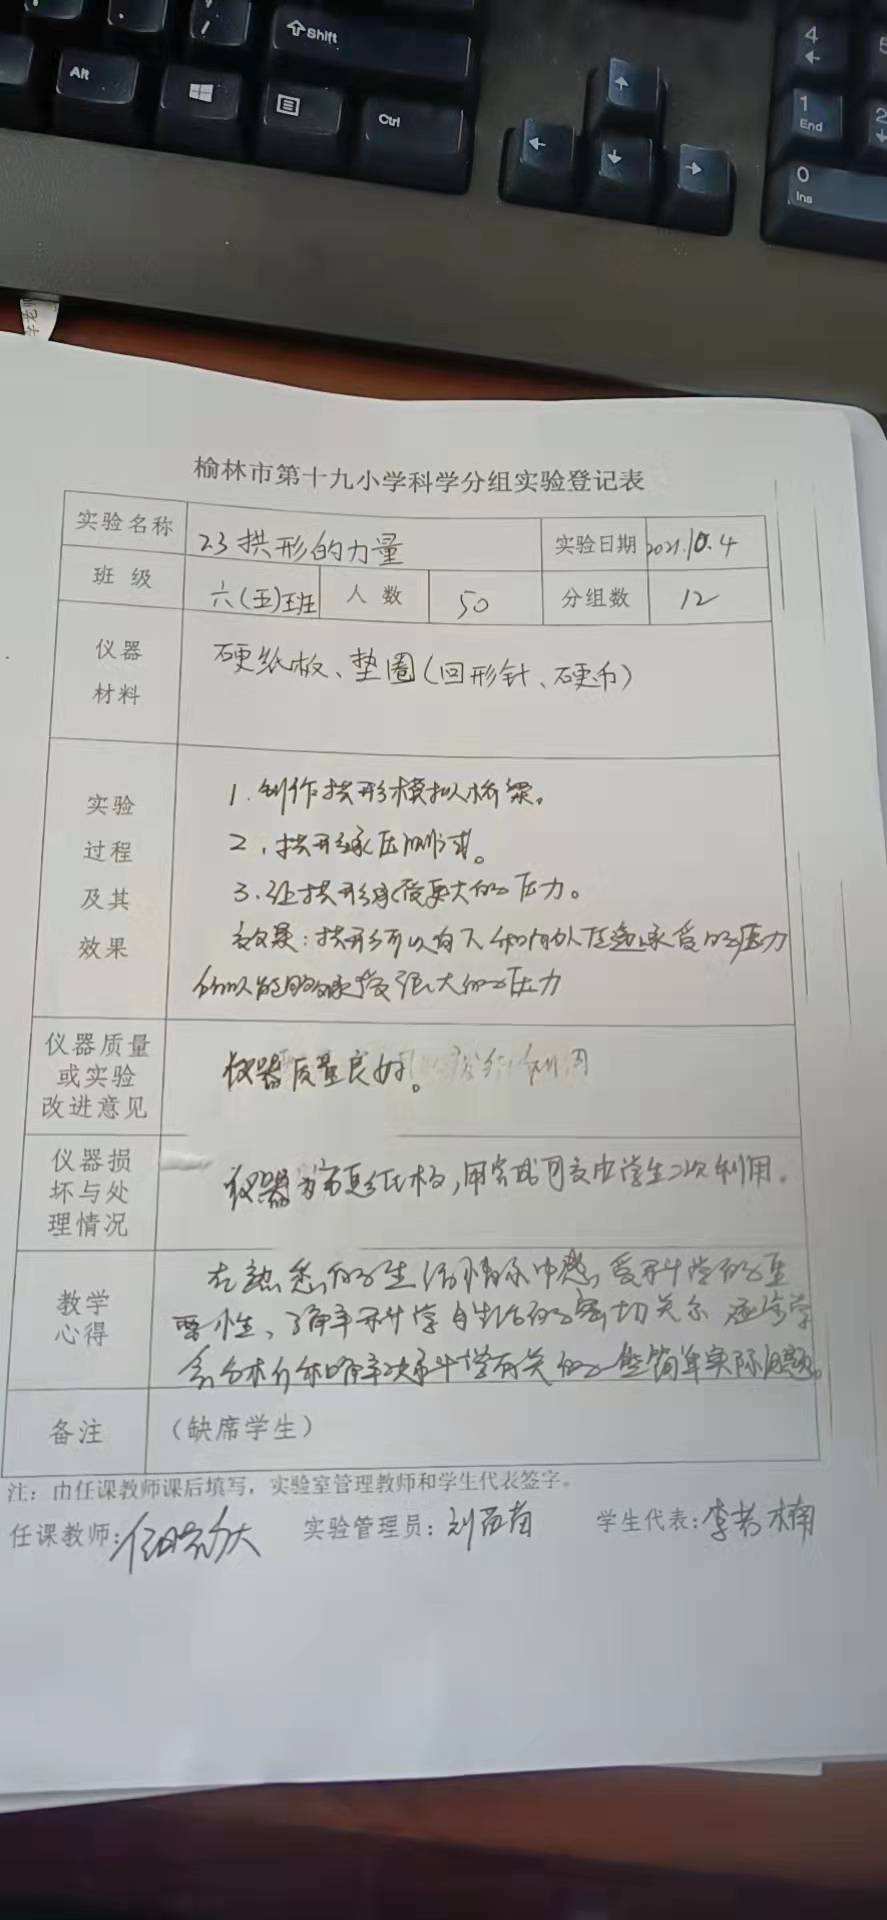 Shift
Alt
Ctrl
4
1
End
2
0
Ins
榆林市第十九小学科学分组实验登记表
实验名称 23拱形的力量 实验日期 2021.10.4
班级 六(五)班 人数 50 分组数 12
仪器材料 硬纸板、垫圈(回形针、硬币)
实验过程及其效果
1.制作拱形模拟桥梁。
2.拱形承压测试。
3.让拱形承受更大的压力。
效果:拱形可以向下和向外传递承受的压力
所以能够承受强大的压力
仪器质量或实验改进意见 仪器质量良好。
仪器损坏与处理情况 仪器为硬纸板,用完可交由学生二次利用。
教学心得
在熟悉的生活情景中感受科学的重
要性,了解科学与生活的密切关系
分析和解决科学有关的一些简单实际问题。
备注 (缺席学生)
注:由任课教师课后填写,实验室管理教师和学生代表签字。
任课教师: 实验管理员:刘 学生代表:李 楠